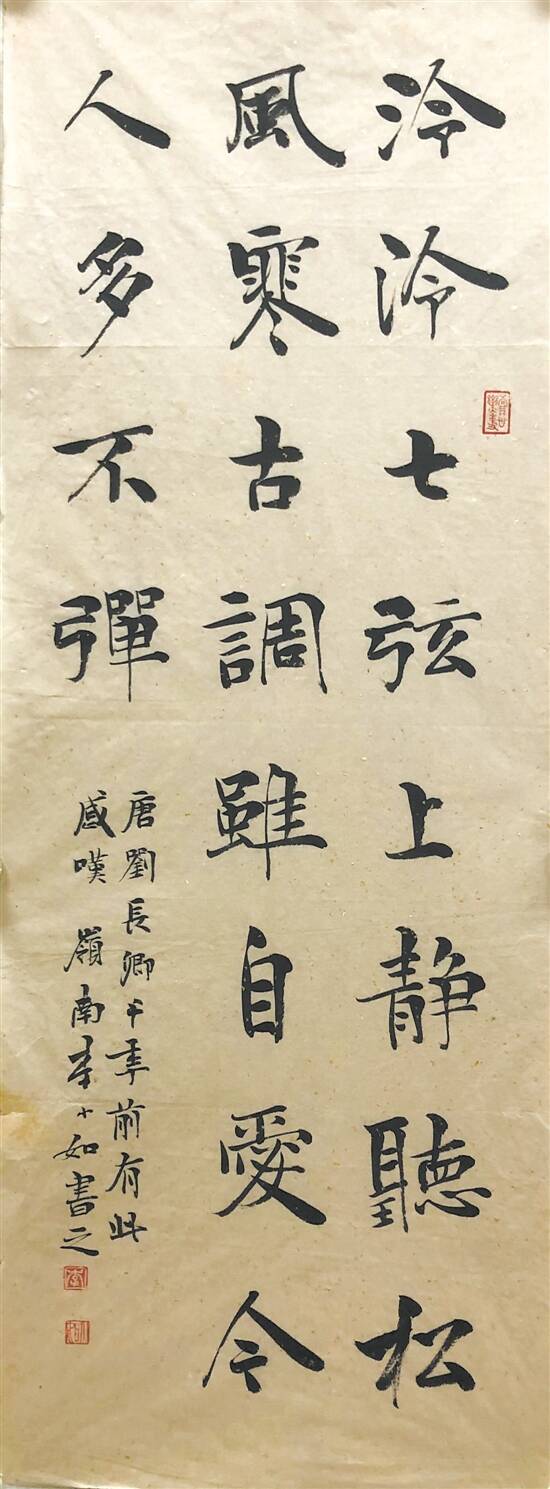 泠泠七弦上静聽松
風寒古調雖自愛今
人多不彈
唐劉長卿千年前有此
感嘆 嶺南李小如書之